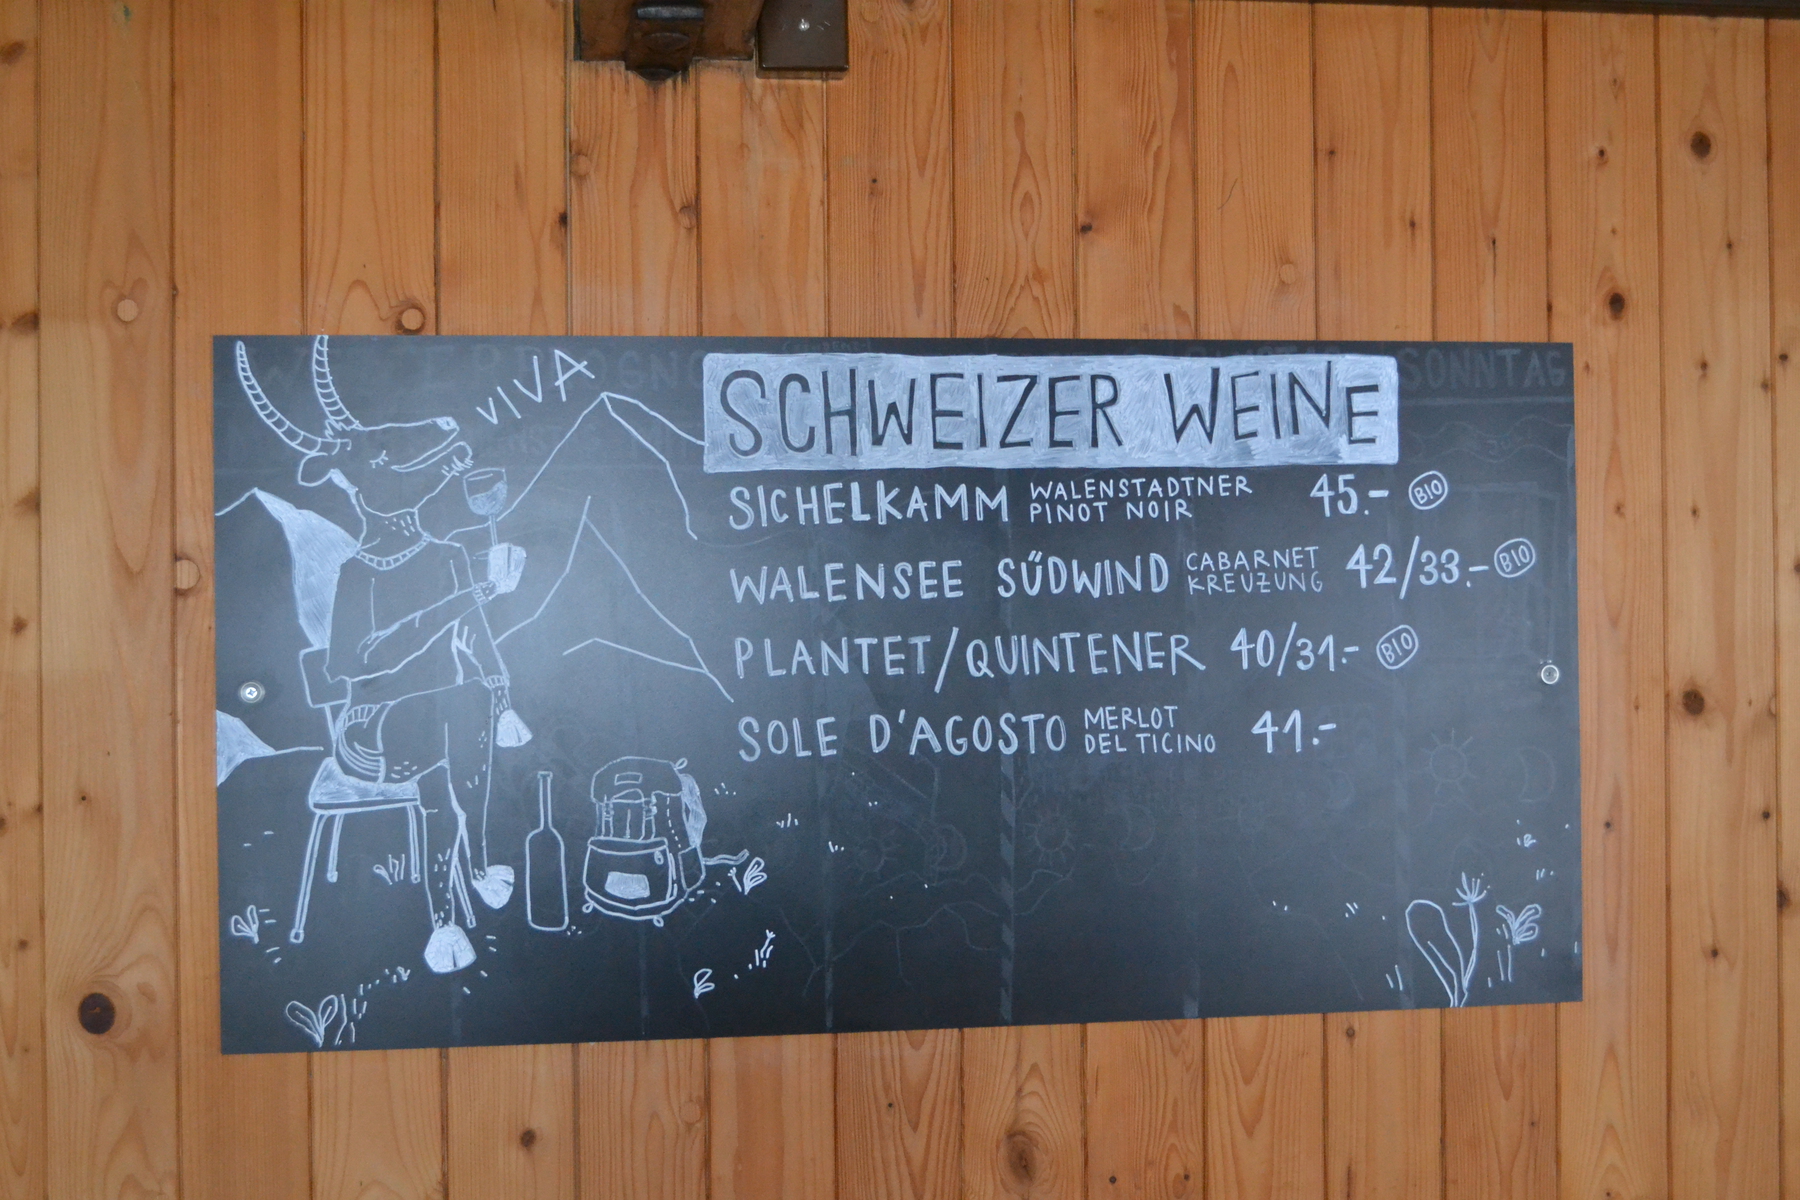 VIVA
SCHWEIZER WEINE
SICHELKAMM WALENSTADTNER PINOT NOIR 45.- BIO
WALENSEE SŰDWIND CABARNET KREUZUNG 42/33.- BIO
PLANTET/QUINTENER 40/31.- BIO
SOLE D'AGOSTO MERLOT DEL TICINO 41.-
SONNTAG